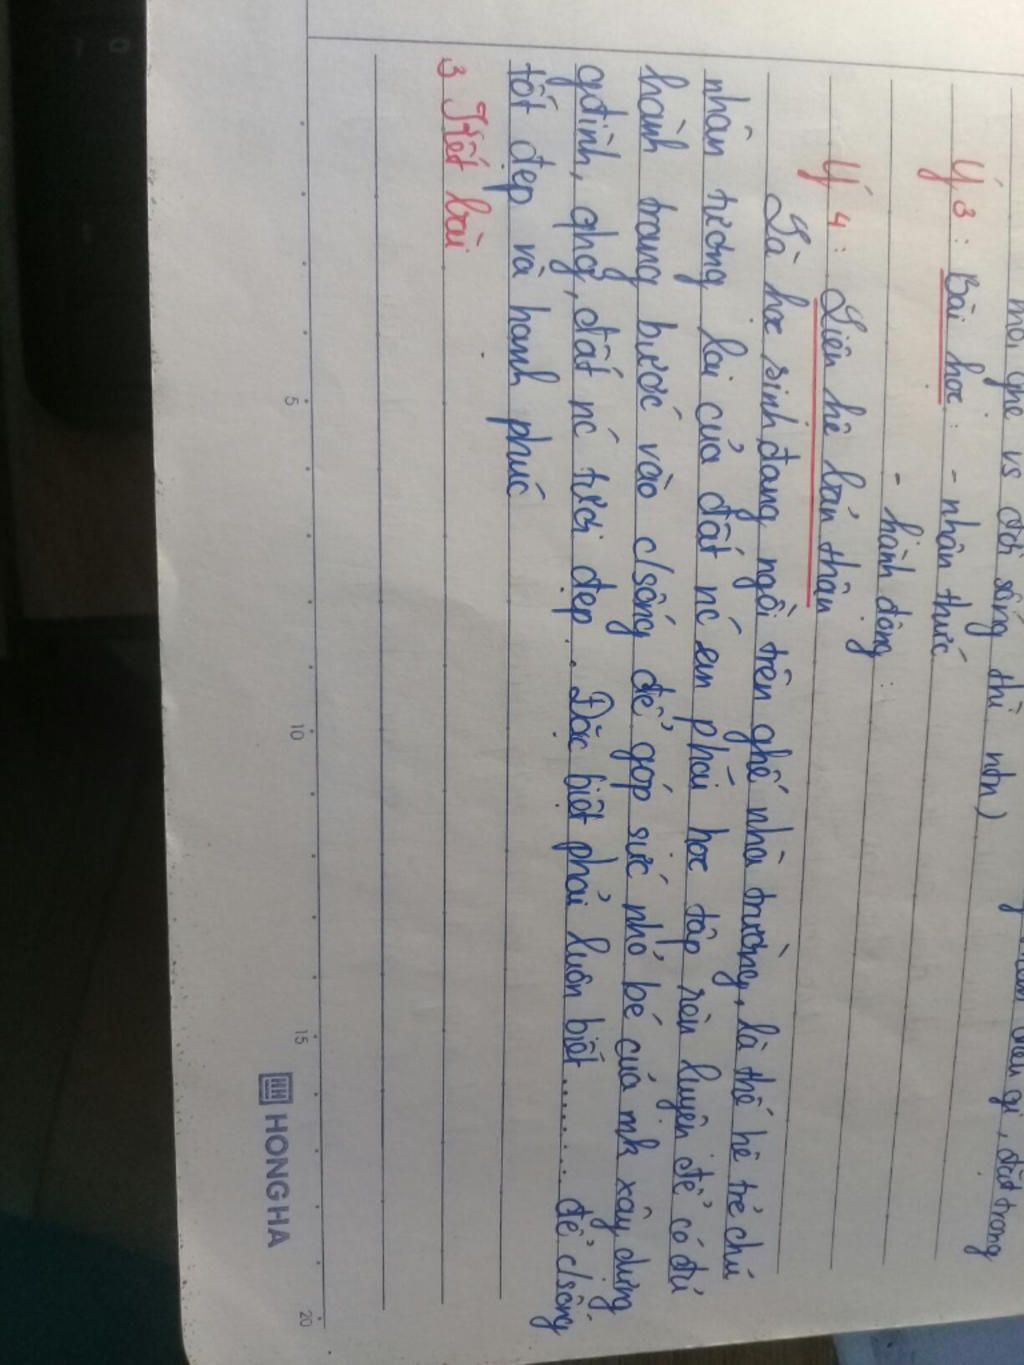 đời sống thì nơn)
Ý 3 : Bài học : - nhân thức
- hành động :
Ý 4 : Liên hệ bản thân
Là học sinh đang ngồi trên ghế nhà trường, là thế hệ trẻ chủ
nhân tương lai của đất nc em phải học tập rèn luyện để có đủ
hành trang bước vào c/sống để góp sức nhỏ bé của mk xây dựng
gđình, qhg, đất nc tươi đẹp. Đặc biệt phải luôn biết ......... để c/sống
tốt đẹp và hạnh phúc
3 Kết bài
5
10
15
20
HONG HA